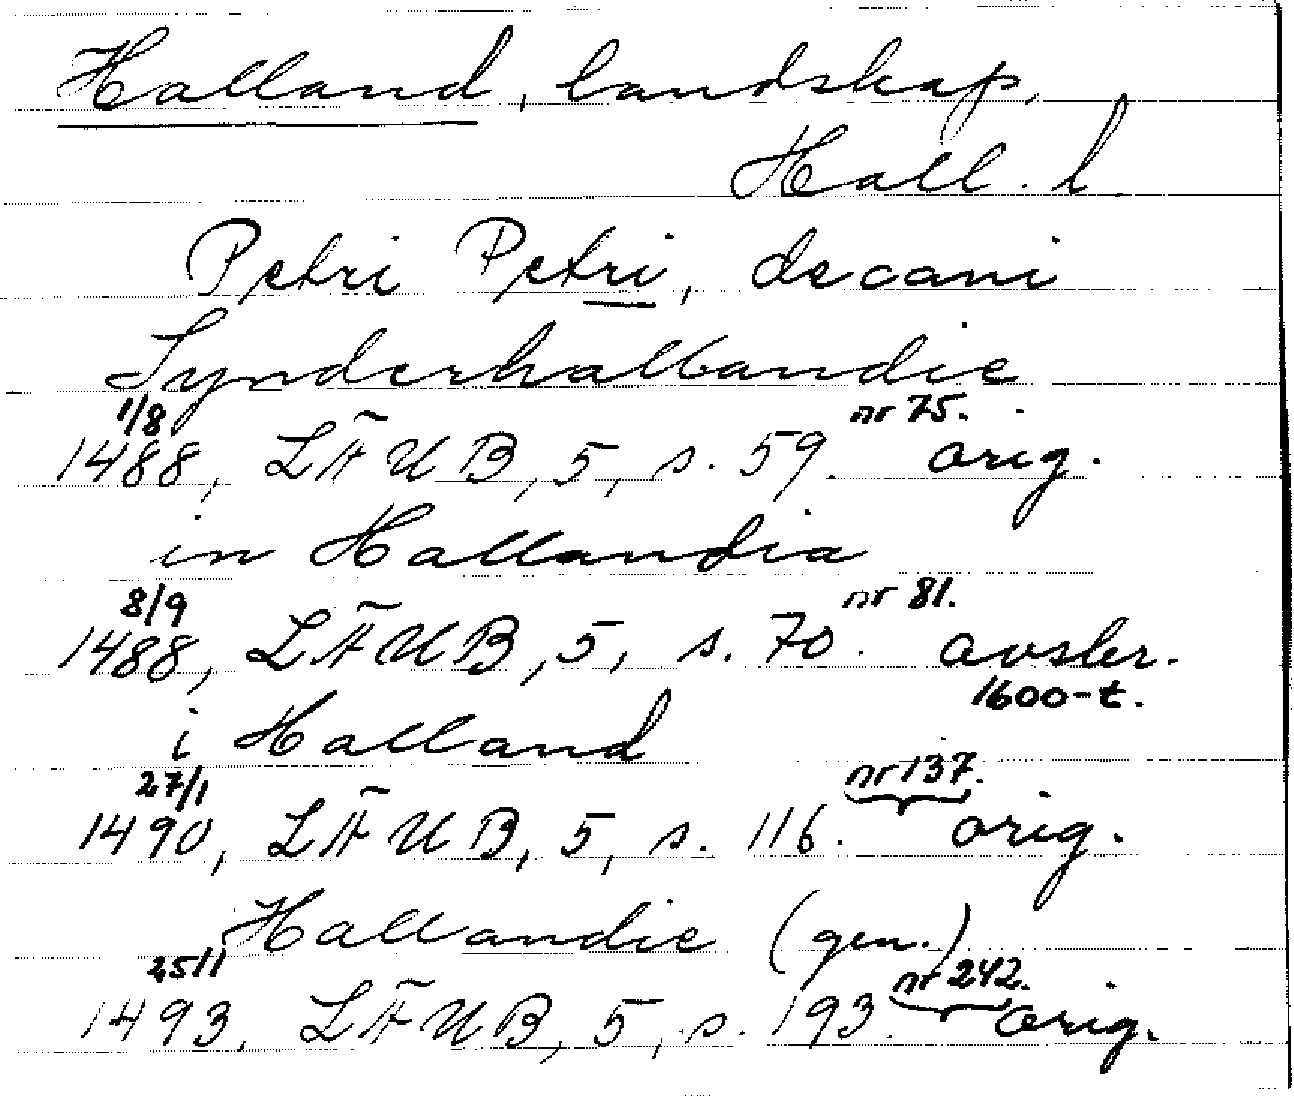 Halland, landskap,
Hall. l.
Petri Petri, decani
Synderhallandie
1/8 nr 75.
1488, LÄUB, 5, s. 59. orig.
in Hallandia
8/9 nr 81.
1488, LÄUB, 5, s. 70. avskr.
1600-t.
i Halland
27/1 nr 137.
1490, LÄUB, 5, s. 116. orig.
Hallandie (gen.)
25/1 nr 242.
1493, LÄUB, 5, s. 193. orig.